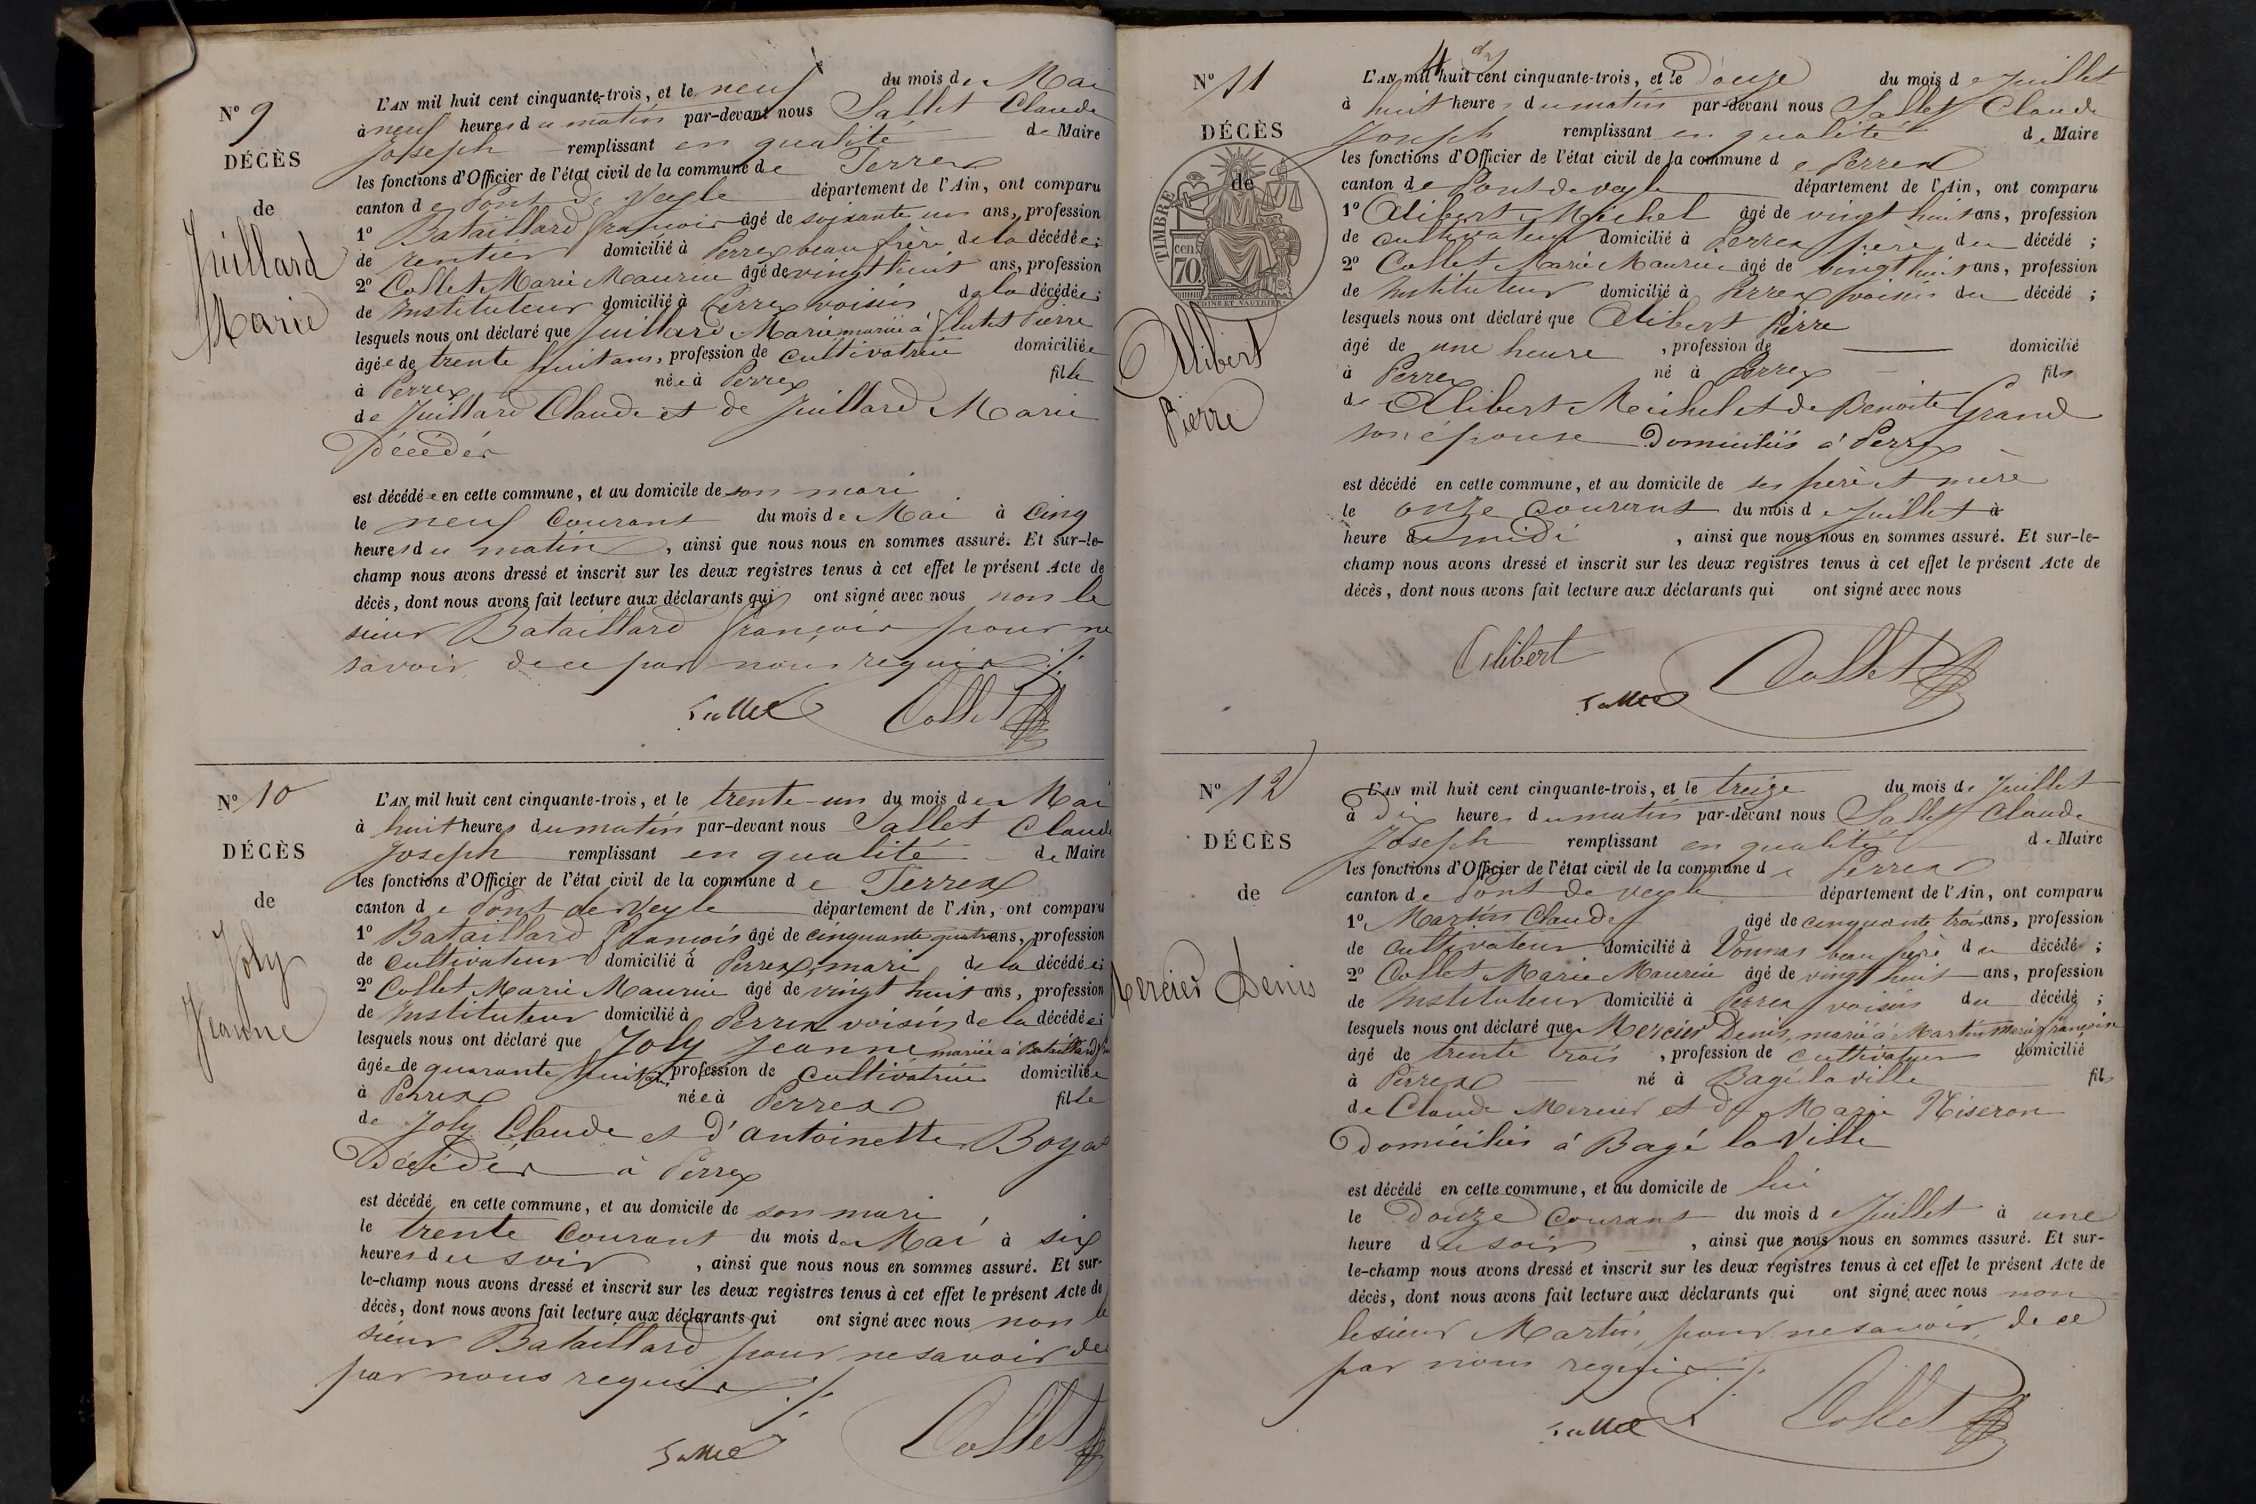 N° 9
DÉCÈS
de
Juillard
Marie
L'AN mil huit cent cinquante-trois, et le neuf du mois de Mai
à neuf heures du matin par-devant nous Sallet Claude
Joseph remplissant en qualité de Maire
les fonctions d'Officier de l'état civil de la commune de Perrex
canton de Pont de Veyle département de l'Ain, ont comparu
1° Bataillard françois âgé de soixante un ans, profession
de rentier domicilié à Perrex beau frère de la décédée;
2° Collet Marie Maurice âgé de vingt huit ans, profession
de Instituteur domicilié à Perrex voisin de la décédée;
lesquels nous ont déclaré que Juillard Marie mariée à Flutet Pierre
âgée de trente huit ans, profession de cultivatrice domiciliée
à Perrex née à Perrex fille
de Juillard Claude et de Juillard Marie
Décédés
est décédée en cette commune, et au domicile de son mari
le neuf Courant du mois de Mai à Cinq
heures du matin, ainsi que nous nous en sommes assuré. Et sur-le-
champ nous avons dressé et inscrit sur les deux registres tenus à cet effet le présent Acte de
décès, dont nous avons fait lecture aux déclarants qui ont signé avec nous non le
sieur Bataillard françois pour ne
savoir de ce par nous requis ./.
Sallet Collet
N° 10
DÉCÈS
de
Joly
Jeanne
L'AN mil huit cent cinquante-trois, et le trente-un du mois de Mai
à huit heures du matin par-devant nous Sallet Claude
Joseph remplissant en qualité de Maire
les fonctions d'Officier de l'état civil de la commune de Perrex
canton de Pont de Veyle département de l'Ain, ont comparu
1° Bataillard François âgé de cinquante quatre ans, profession
de cultivateur domicilié à Perrex, mari de la décédée;
2° Collet Marie Maurice âgé de vingt huit ans, profession
de Instituteur domicilié à Perrex voisin de la décédée;
lesquels nous ont déclaré que Joly Jeanne mariée à Bataillard
âgée de quarante huit ans, profession de cultivatrice domiciliée
à Perrex née à Perrex fille
de Joly Claude et d'antoinette Boyat
Décédés à Perrex
est décédé en cette commune, et au domicile de son mari
le trente Courant du mois de Mai à six
heures du soir, ainsi que nous nous en sommes assuré. Et sur-
le-champ nous avons dressé et inscrit sur les deux registres tenus à cet effet le présent Acte de
décès, dont nous avons fait lecture aux déclarants qui ont signé avec nous non le
sieur Bataillard pour ne savoir de
par nous requis ./.
Sallet Collet
N° 11
DÉCÈS
de
TIMBRE
70 cen
Alibert
Pierre
L'AN mil huit cent cinquante-trois, et le Douze du mois de Juillet
à huit heures du matin par-devant nous Sallet Claude
Joseph remplissant en qualité de Maire
les fonctions d'Officier de l'état civil de la commune de Perrex
canton de Pont de veyle département de l'Ain, ont comparu
1° Alibert Michel âgé de vingt huit ans, profession
de cultivateur domicilié à Perrex père du décédé;
2° Collet Marie Maurice âgé de vingt huit ans, profession
de Instituteur domicilié à Perrex voisin du décédé;
lesquels nous ont déclaré que Alibert Pierre
âgé de une heure, profession de domicilié
à Perrex né à Perrex fils
de Alibert Michel et de Benoite Grand
son épouse Domiciliés à Perrex
est décédé en cette commune, et au domicile de ses père et mère
le onze courant du mois de Juillet à
heure de midi, ainsi que nous nous en sommes assuré. Et sur-le-
champ nous avons dressé et inscrit sur les deux registres tenus à cet effet le présent Acte de
décès, dont nous avons fait lecture aux déclarants qui ont signé avec nous
Alibert Sallet Collet
N° 12
DÉCÈS
de
Mercier Denis
L'AN mil huit cent cinquante-trois, et le treize du mois de Juillet
à Dix heures du matin par-devant nous Sallet Claude
Joseph remplissant en qualité de Maire
les fonctions d'Officier de l'état civil de la commune de Perrex
canton de Pont de veyle département de l'Ain, ont comparu
1° Martin Claude âgé de cinquante trois ans, profession
de cultivateur domicilié à Vonnas beau père du décédé;
2° Collet Marie Maurice âgé de vingt huit ans, profession
de Instituteur domicilié à Perrex voisin du décédé;
lesquels nous ont déclaré que Mercier Denis, marié à Martin Marie françoise
âgé de trente trois, profession de cultivateur domicilié
à Perrex né à Bagé la ville fils
de Claude Mercier et de Marie Niseron
Domiciliés à Bagé la Ville
est décédé en cette commune, et au domicile de lui
le Douze Courant du mois de Juillet à une
heure du soir, ainsi que nous nous en sommes assuré. Et sur-
le-champ nous avons dressé et inscrit sur les deux registres tenus à cet effet le présent Acte de
décès, dont nous avons fait lecture aux déclarants qui ont signé avec nous non
le sieur Martin, pour ne savoir, de ce
par nous requis ./.
Sallet Collet